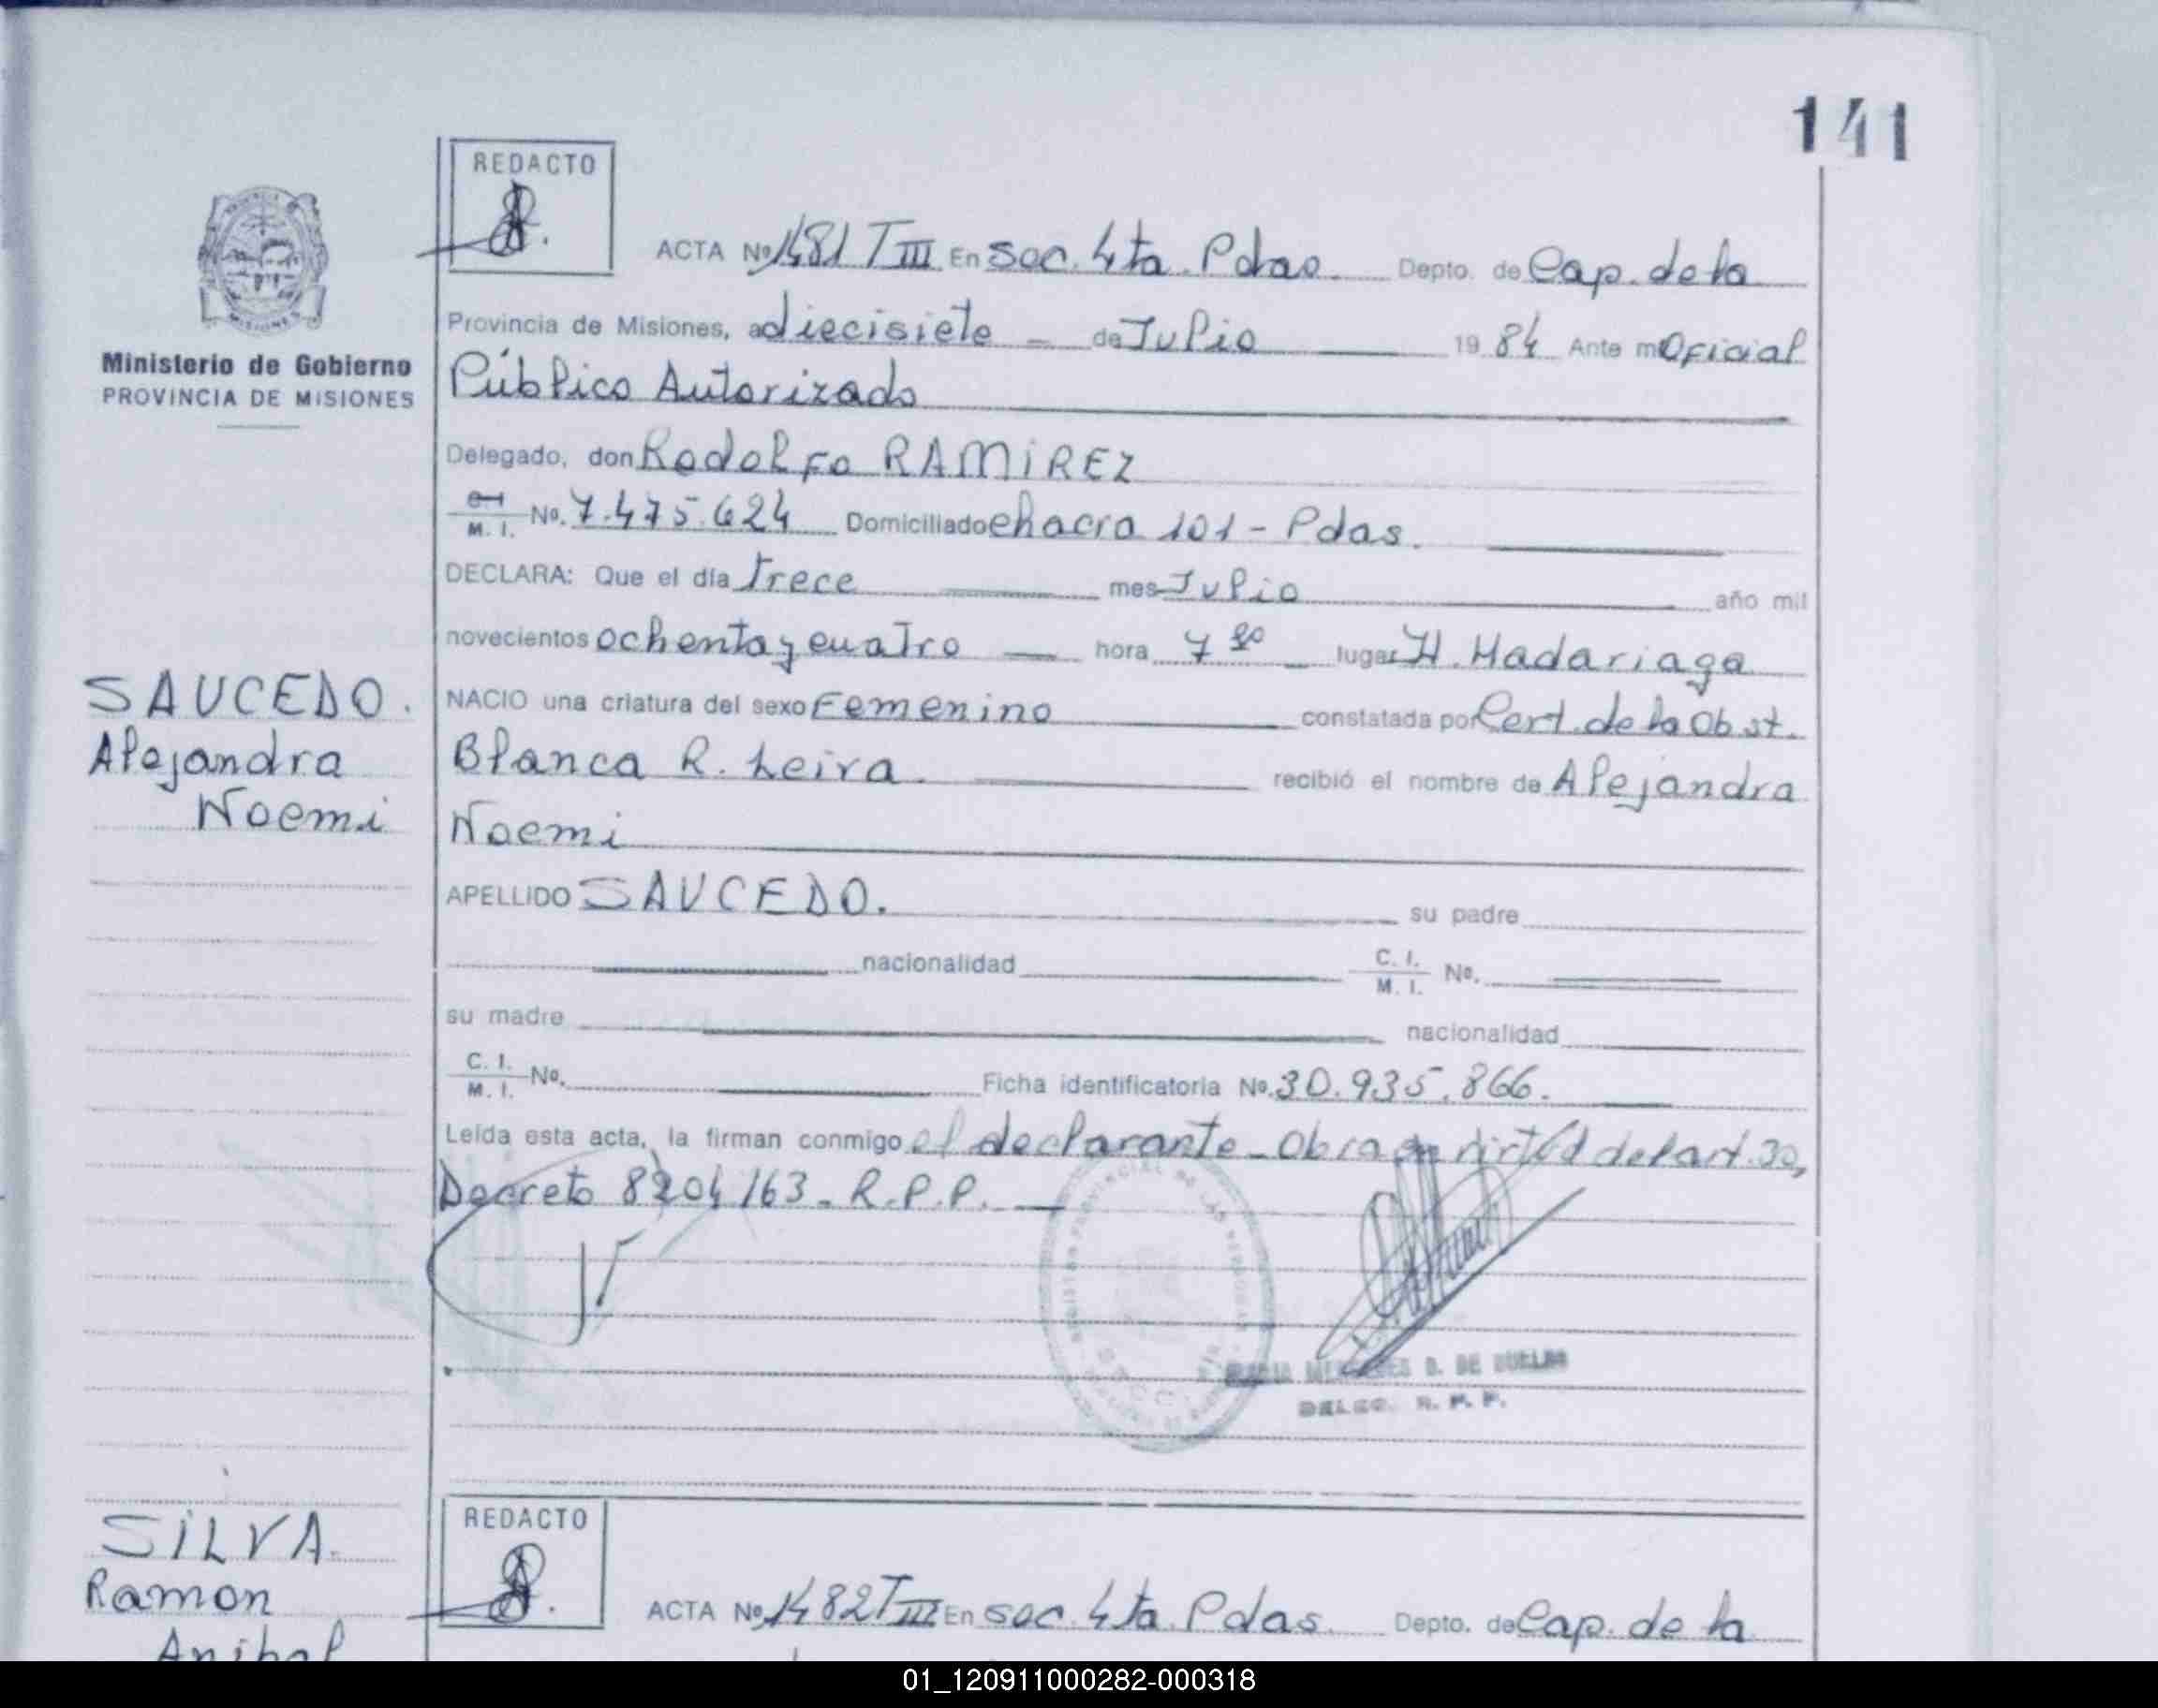 141
REDACTO
ACTA Nº 1481 T III En Sec. 4ta. Pdas. Depto. de Cap. de la
Provincia de Misiones, a diecisiete - de Julio 19 84 Ante mi Oficial
Público Autorizado
Ministerio de Gobierno
PROVINCIA DE MISIONES
Delegado, don Rodolfo RAMIREZ
M. I. Nº. 7.475.624 Domiciliado chacra 101 - Pdas.
DECLARA: Que el día trece mes Julio año mil
novecientos ochenta y cuatro hora 7 lugar H. Madariaga
SAUCEDO.
Alejandra
Noemi
NACIO una criatura del sexo Femenino constatada por Cert. de la Obst.
Blanca R. Leiva recibió el nombre de Alejandra
Noemi
APELLIDO SAUCEDO. su padre
nacionalidad C. I. M. I. Nº.
su madre nacionalidad
C. I. M. I. Nº. Ficha identificatoria Nº. 30.935.866.
Leída esta acta, la firman conmigo el declarante - Obra en virtud del art. 30,
Decreto 8204/63 - R.P.P.
DE
DELEG. R. P. P.
SILVA.
Ramon
Anibal
REDACTO
ACTA Nº 1482 T III En Sec. 4ta. Pdas. Depto. de Cap. de la
01_120911000282-000318